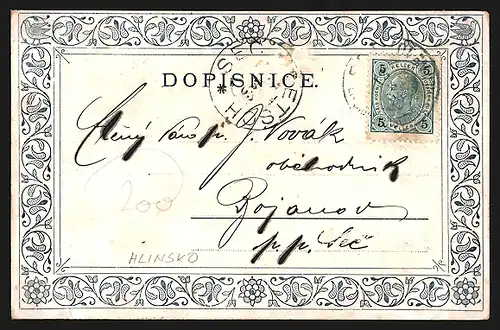 DOPISNICE.
p. J. Novák
obchodník
Bojanov
p. p. Seč
200
HLINSKO
5 5
5 5